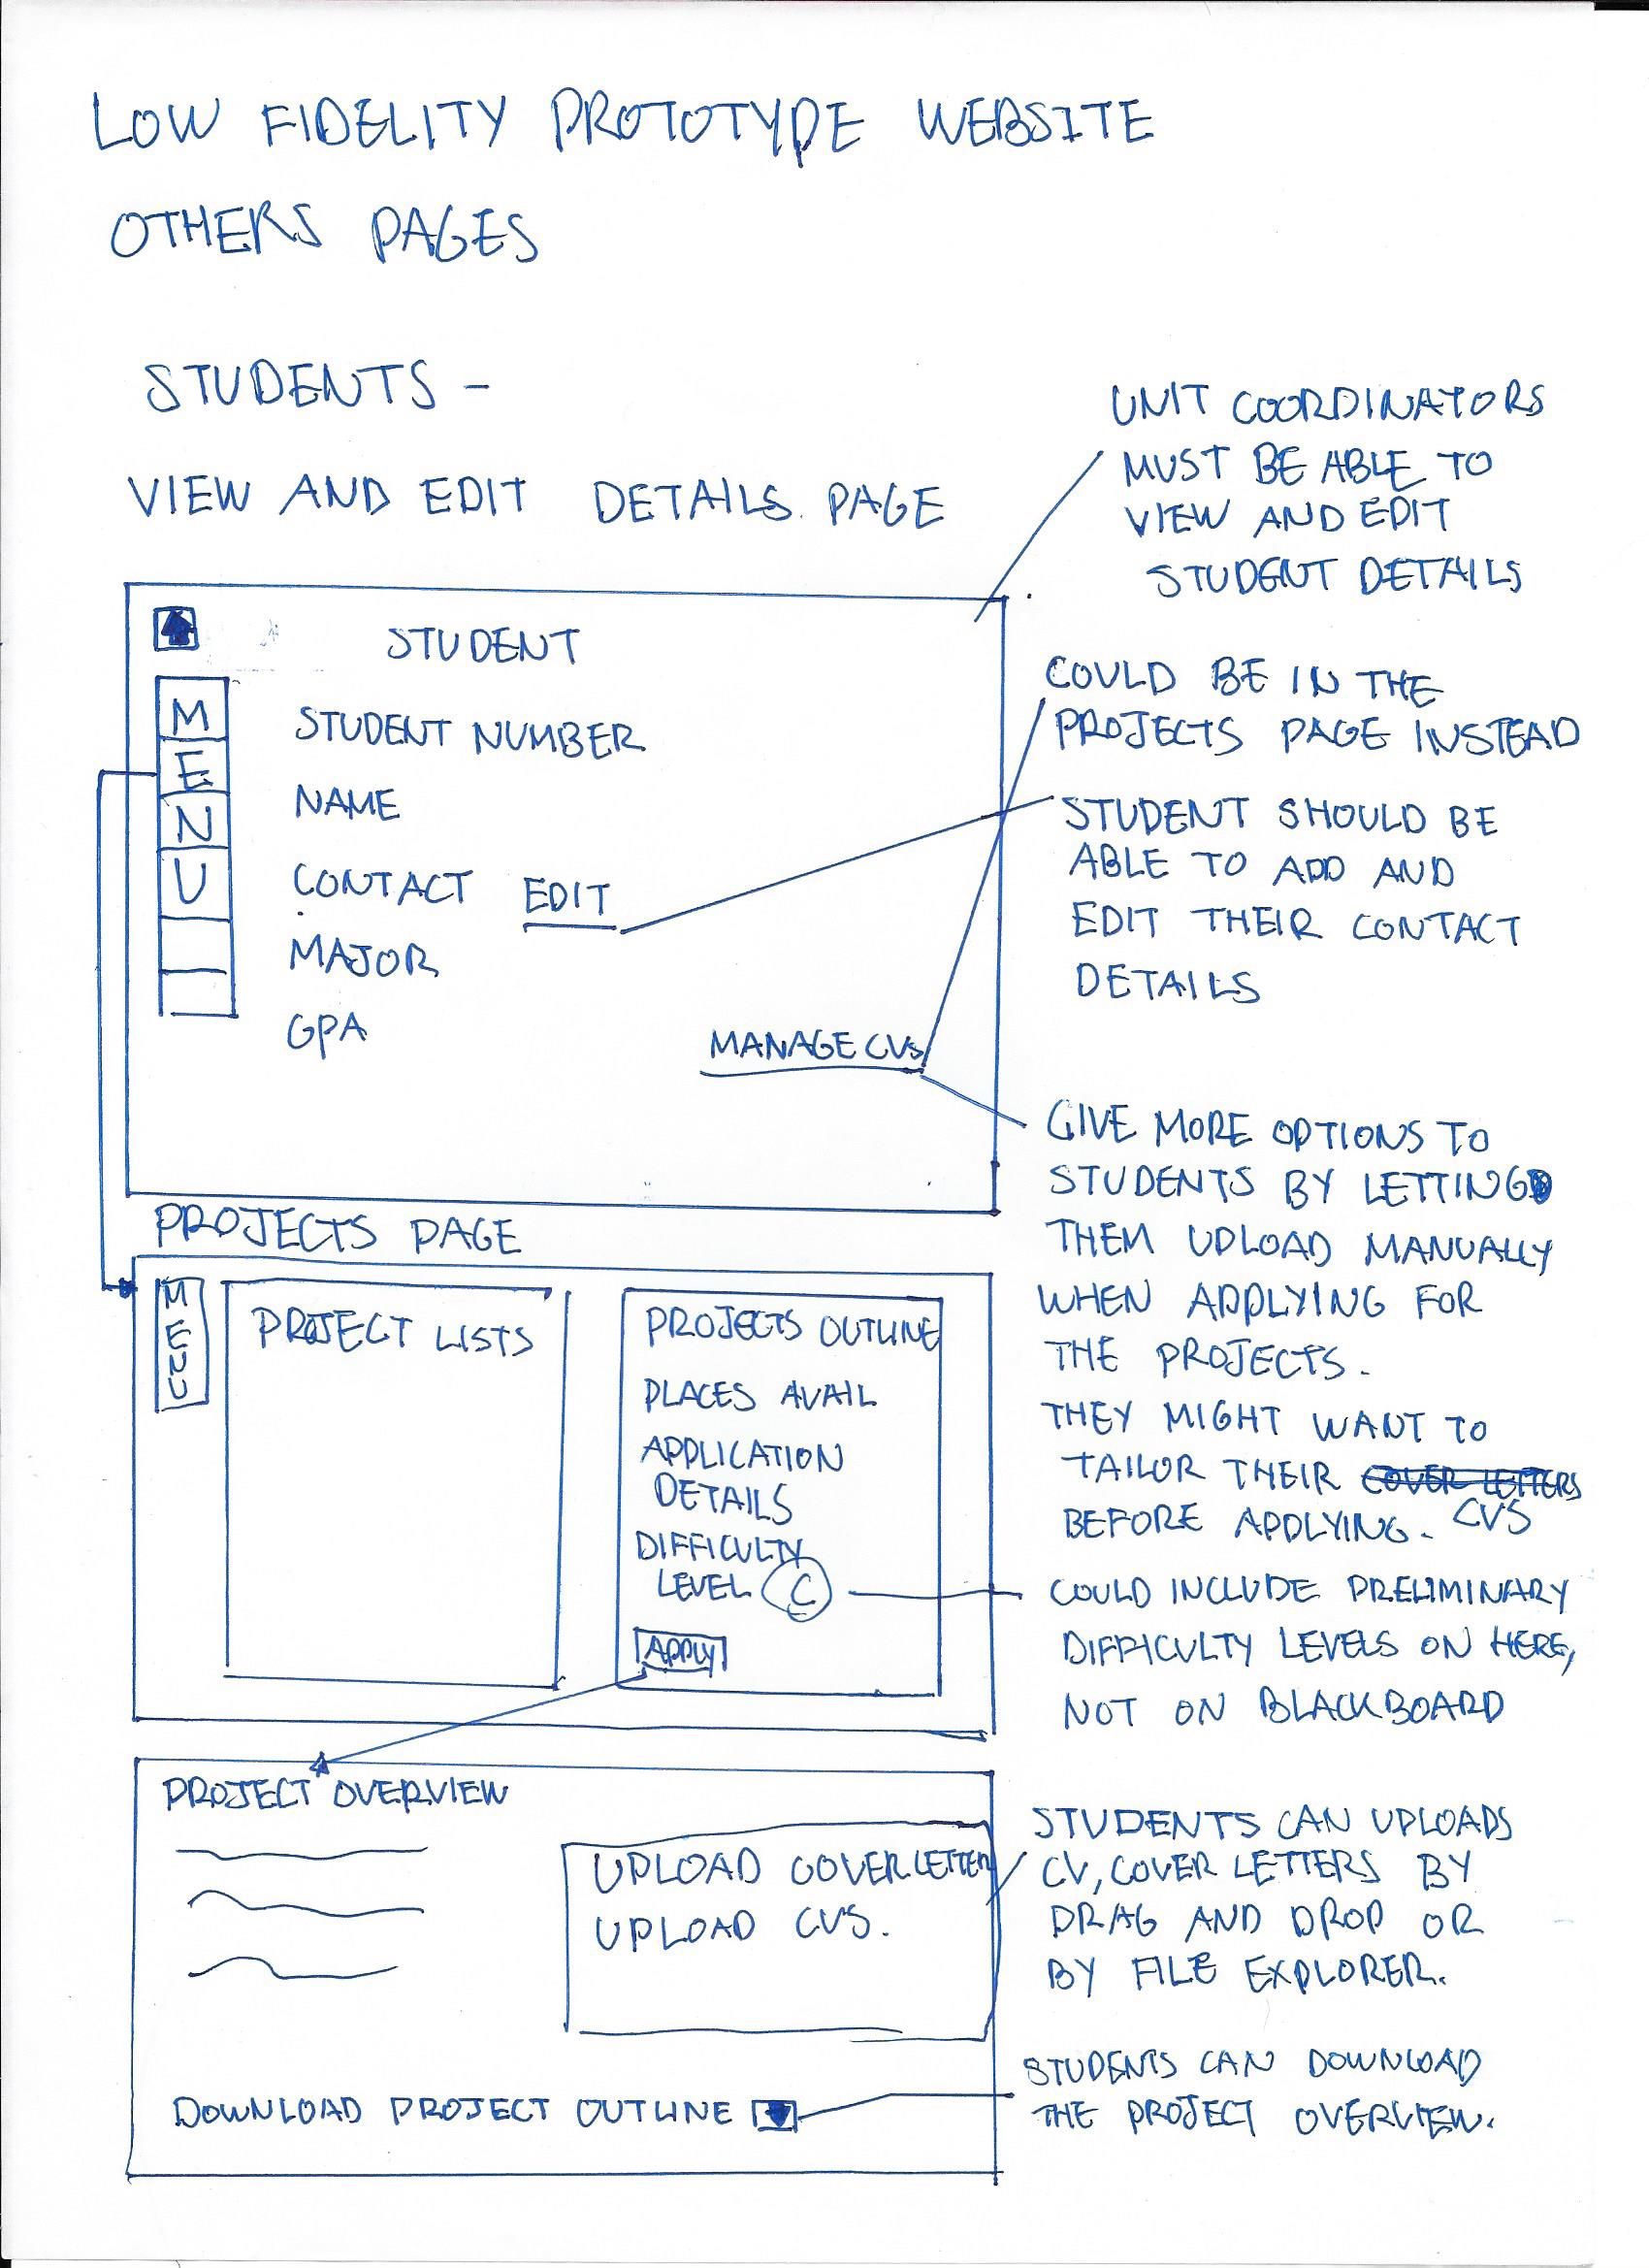 LOW FIDELITY PROTOTYPE WEBSITE
OTHERS PAGES
STUDENTS -
VIEW AND EDIT DETAILS PAGE
UNIT COORDINATORS
MUST BE ABLE TO
VIEW AND EDIT
STUDENT DETAILS
STUDENT
M
E
N
U
STUDENT NUMBER
NAME
CONTACT EDIT
MAJOR
GPA
MANAGE CVS
COULD BE IN THE
PROJECTS PAGE INSTEAD
STUDENT SHOULD BE
ABLE TO ADD AND
EDIT THEIR CONTACT
DETAILS
GIVE MORE OPTIONS TO
STUDENTS BY LETTING
THEM UPLOAD MANUALLY
WHEN APPLYING FOR
THE PROJECTS.
THEY MIGHT WANT TO
TAILOR THEIR COVER LETTERS
CVS
BEFORE APPLYING.
PROJECTS PAGE
M
E
N
U
PROJECT LISTS
PROJECTS OUTLINE
PLACES AVAIL
APPLICATION
DETAILS
DIFFICULTY
LEVEL C
APPLY
COULD INCLUDE PRELIMINARY
DIFFICULTY LEVELS ON HERE,
NOT ON BLACKBOARD
PROJECT OVERVIEW
UPLOAD COVER LETTER
UPLOAD CVS.
DOWNLOAD PROJECT OUTLINE
STUDENTS CAN UPLOADS
CV, COVER LETTERS BY
DRAG AND DROP OR
BY FILE EXPLORER.
STUDENTS CAN DOWNLOAD
THE PROJECT OVERVIEW.